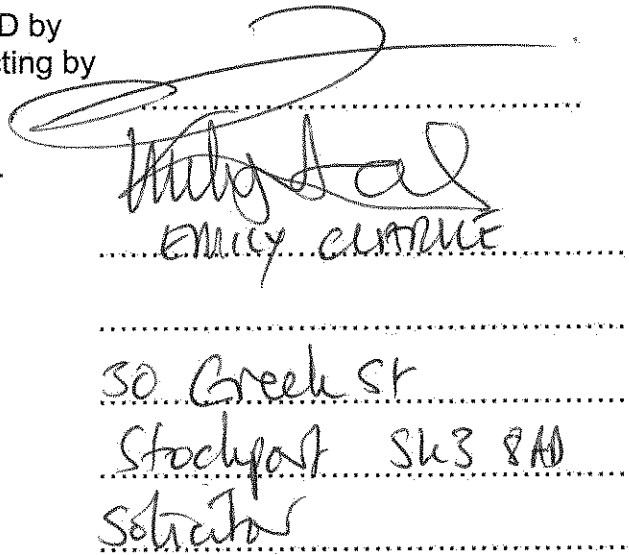 D by
cting by
EMILY CLARKE
30 Greek St
Stockport SK3 8AD
Solicitor